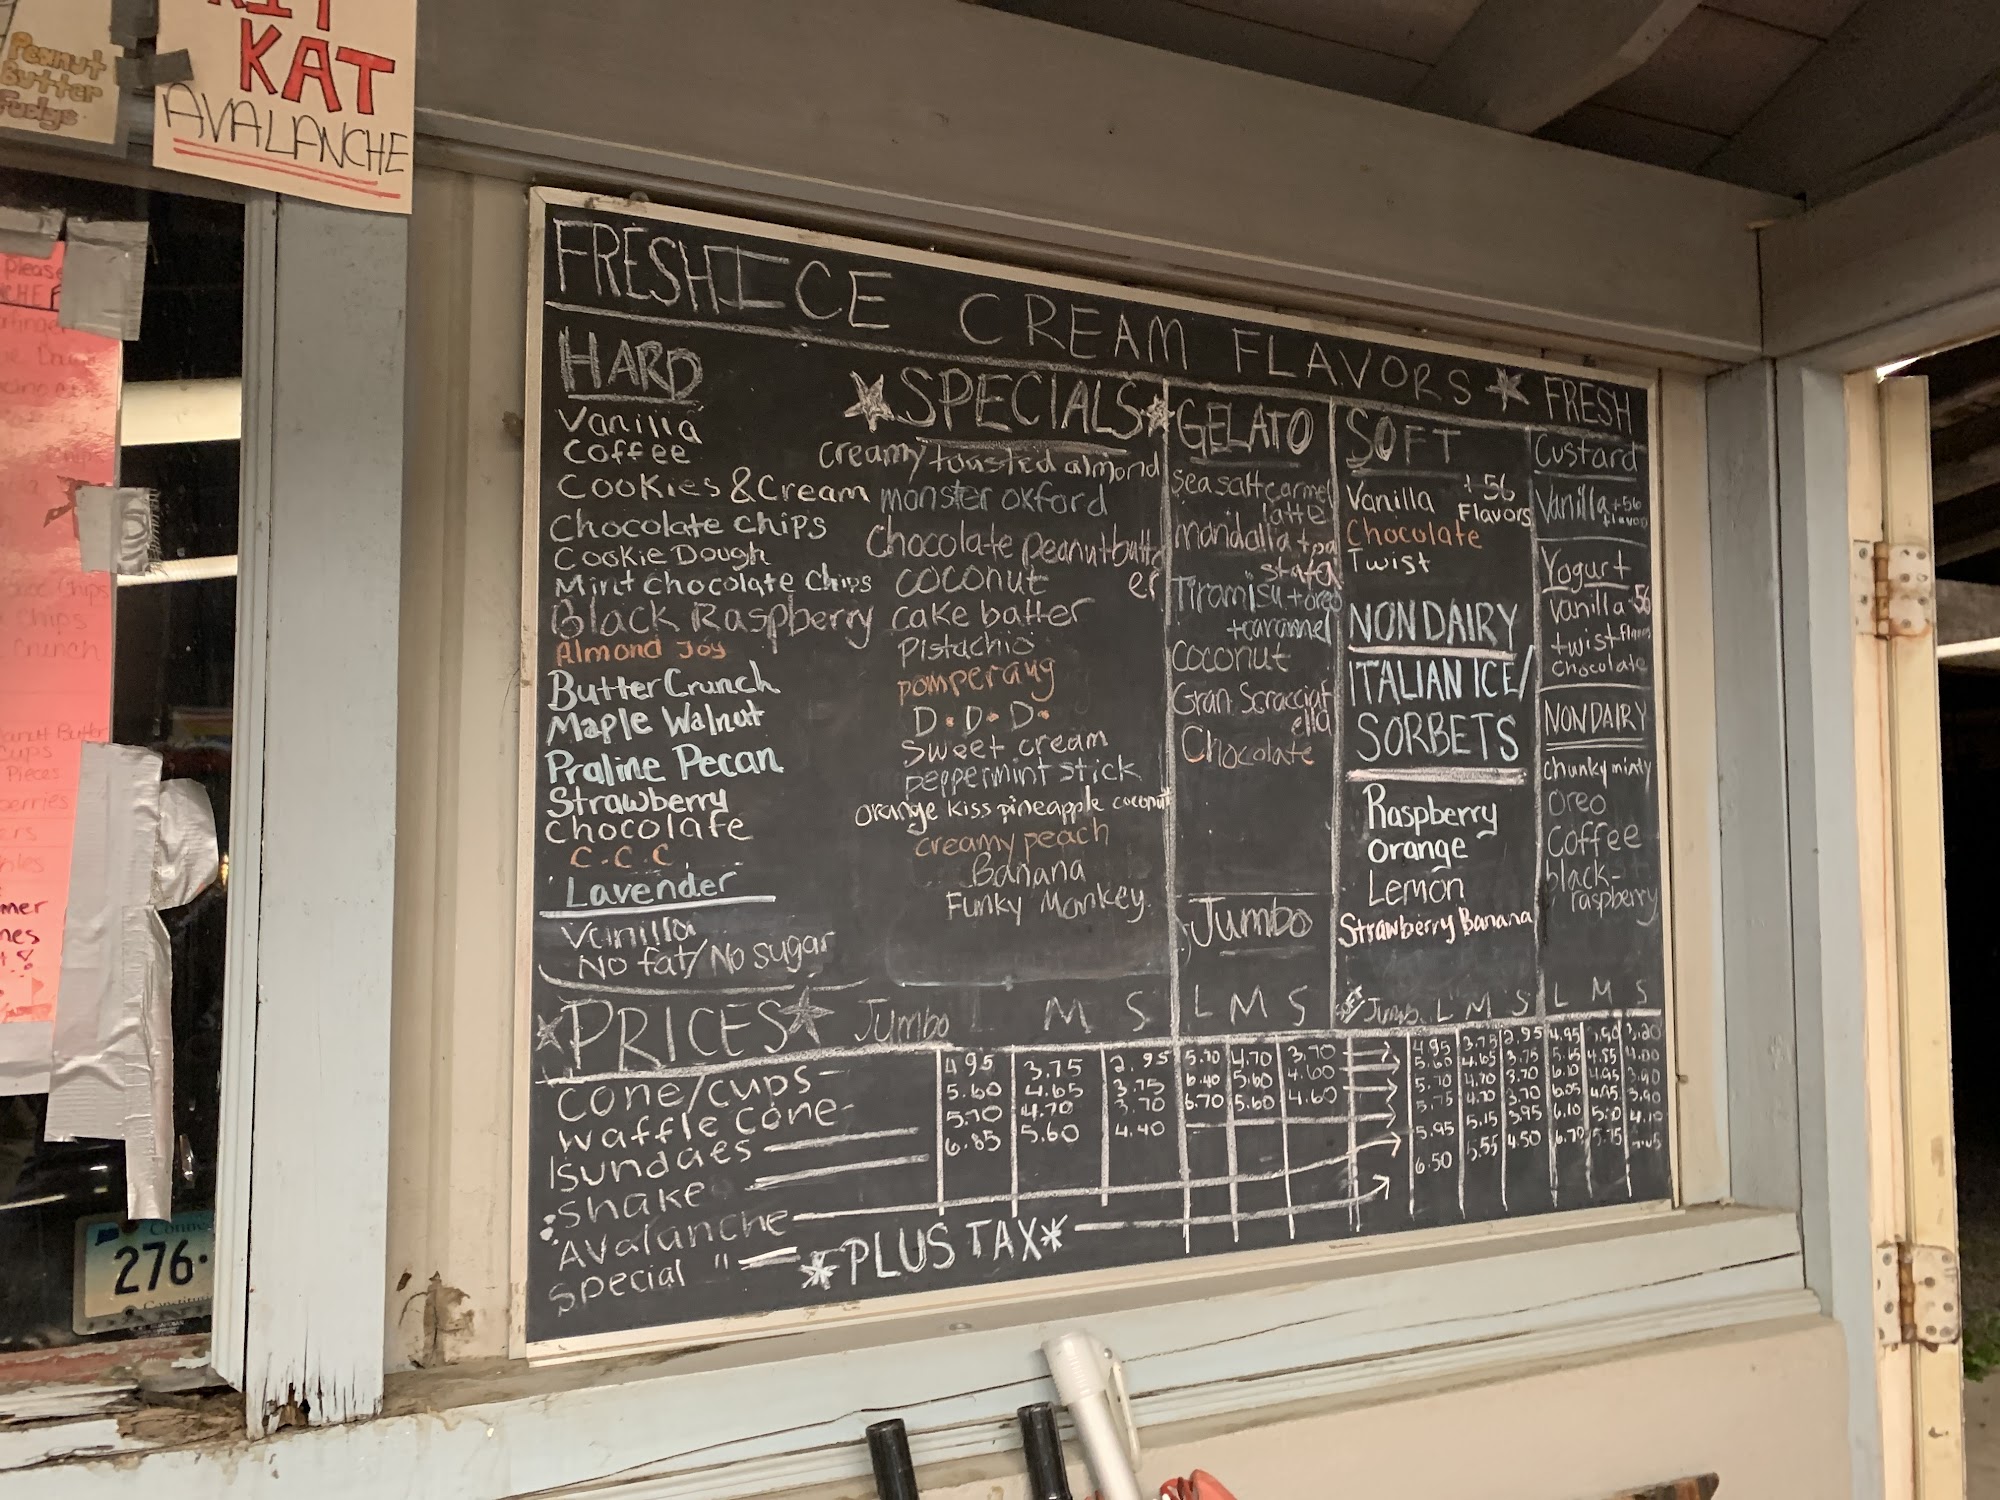 Peanut
Butter
Fudgs
KAT
AVALANCHE
Please
Chips
Chips
Crunch
Butter
Cups
Pieces
276
FRESH ICE CREAM FLAVORS
HARD
Vanilla
Coffee
Cookies & Cream
Chocolate chips
Cookie Dough
Mint Chocolate Chips
Black Raspberry
Almond Joy
Butter Crunch
Maple Walnut
Praline Pecan
Strawberry
Chocolate
C.C.C
Lavender
Vanilla
No fat/No sugar
SPECIALS
creamy toasted almond
monster oxford
Chocolate peanutbutt
er
coconut
cake batter
Pistachio
pomperang
D.D.D.
Sweet cream
peppermint stick
orange kiss pineapple coconut
creamy peach
Banana
Funky Monkey
GELATO
sea salt carmel
latte
mandalla + pa
stata
Tiramisu + oreo
+caramel
coconut
Gran Scracciat
ella
Chocolate
Jumbo
SOFT
Vanilla +56
Flavors
Chocolate
Twist
NONDAIRY
ITALIAN ICE/
SORBETS
Raspberry
orange
Lemon
Strawberry Banana
FRESH
Custard
Vanilla +56
flavors
Yogurt
Vanilla +56
twist flavors
Chocolate
NONDAIRY
chunky minty
oreo
coffee
black-
raspberry
PRICES Jumbo M S L M S Jumbo L M S L M S
cone/cups- 4.95 3.75 2.95 5.70 4.70 3.70 4.95 3.75 2.95 4.95 3.20
waffle cone- 5.60 4.65 3.75 6.40 5.60 4.60 5.60 4.65 3.75 5.65 4.55 4.00
sundaes 5.70 4.70 3.70 6.70 5.60 4.60 5.70 4.70 3.70 6.10 4.95 3.90
shake 6.85 5.60 4.40 5.75 4.70 3.70 6.05 4.95 3.90
Avalanche 5.95 5.15 3.95 6.10 4.10
special " 6.50 5.55 4.50 6.70 5.75
*PLUS TAX*